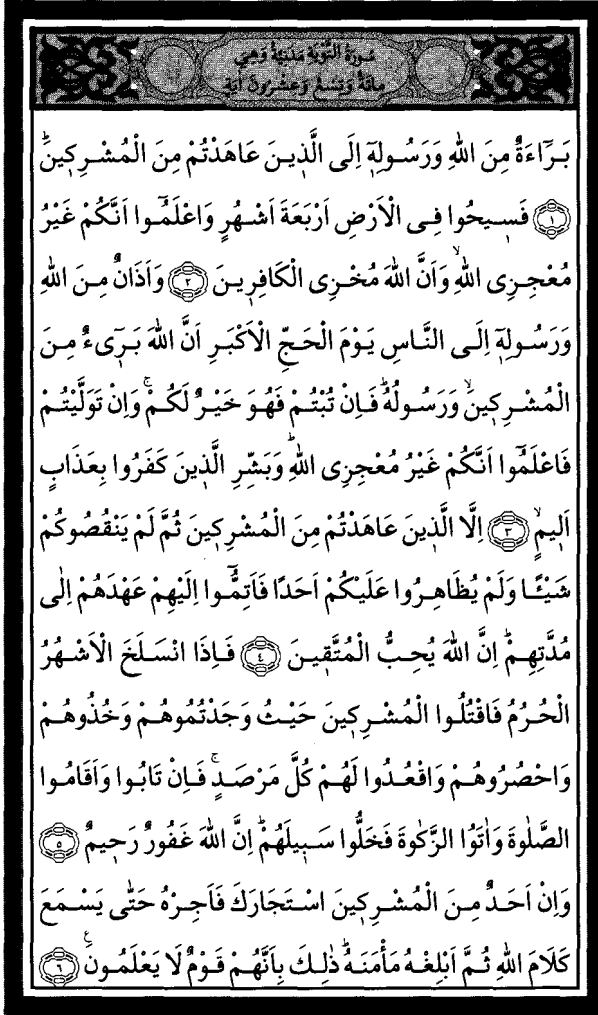 سُورَةُ التَّوْبَةِ مَدَنِيَّةٌ وَهِيَ
مِائَةٌ وَتِسْعٌ وَعِشْرُونَ اٰيَةٍ
بَرَٓاءَةٌ مِنَ اللهِ وَرَسُولِهٖٓ اِلَى الَّذ۪ينَ عَاهَدْتُمْ مِنَ الْمُشْرِك۪ينَۜ
﴿١﴾ فَس۪يحُوا فِى الْاَرْضِ اَرْبَعَةَ اَشْهُرٍ وَاعْلَمُٓوا اَنَّكُمْ غَيْرُ
مُعْجِزِى اللهِۙ وَاَنَّ اللهَ مُخْزِى الْكَافِر۪ينَ ﴿٢﴾ وَاَذَانٌ مِنَ اللهِ
وَرَسُولِهٖٓ اِلَى النَّاسِ يَوْمَ الْحَجِّ الْاَكْبَرِ اَنَّ اللهَ بَر۪ٓىءٌ مِنَ
الْمُشْرِك۪ينَۙ وَرَسُولُهُۜ فَاِنْ تُبْتُمْ فَهُوَ خَيْرٌ لَكُمْۚ وَاِنْ تَوَلَّيْتُمْ
فَاعْلَمُٓوا اَنَّكُمْ غَيْرُ مُعْجِزِى اللهِۜ وَبَشِّرِ الَّذ۪ينَ كَفَرُوا بِعَذَابٍ
اَل۪يمٍۙ ﴿٣﴾ اِلَّا الَّذ۪ينَ عَاهَدْتُمْ مِنَ الْمُشْرِك۪ينَ ثُمَّ لَمْ يَنْقُصُوكُمْ
شَيْـًٔا وَلَمْ يُظَاهِرُوا عَلَيْكُمْ اَحَدًا فَاَتِمُّٓوا اِلَيْهِمْ عَهْدَهُمْ اِلٰى
مُدَّتِهِمْۜ اِنَّ اللهَ يُحِبُّ الْمُتَّق۪ينَ ﴿٤﴾ فَاِذَا انْسَلَخَ الْاَشْهُرُ
الْحُرُمُ فَاقْتُلُوا الْمُشْرِك۪ينَ حَيْثُ وَجَدْتُمُوهُمْ وَخُذُوهُمْ
وَاحْصُرُوهُمْ وَاقْعُدُوا لَهُمْ كُلَّ مَرْصَدٍۚ فَاِنْ تَابُوا وَاَقَامُوا
الصَّلٰوةَ وَاٰتَوُا الزَّكٰوةَ فَخَلُّوا سَب۪يلَهُمْۜ اِنَّ اللهَ غَفُورٌ رَح۪يمٌ ﴿٥﴾
وَاِنْ اَحَدٌ مِنَ الْمُشْرِك۪ينَ اسْتَجَارَكَ فَاَجِرْهُ حَتّٰى يَسْمَعَ
كَلَامَ اللهِ ثُمَّ اَبْلِغْهُ مَأْمَنَهُۜ ذٰلِكَ بِاَنَّهُمْ قَوْمٌ لَا يَعْلَمُونَ۟ ﴿٦﴾